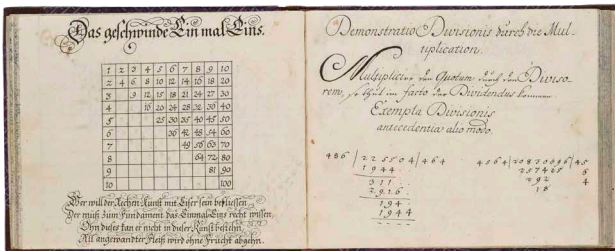 Das geschwinde Ein mal Eins.
1 2 3 4 5 6 7 8 9 10
2 4 6 8 10 12 14 16 18 20
3 9 12 15 18 21 24 27 30
4 16 20 24 28 32 36 40
5 25 30 35 40 45 50
6 36 42 48 54 60
7 49 56 63 70
8 64 72 80
9 81 90
10 100
Wer will der Rechen Kunst mit Eifer sein beflissen
Der muß zum Fundament das Einmal Eins recht wissen
Ohn dieses kan er nicht in dieser Kunst bestehn,
All angewandter Fleiß wird ohne Frucht abgehn.
Demonstratio Divisionis durch die Mul-
tiplication.
Multiplicire den Quotum durch den Diviso-
rem, so im facto der Dividendus kommen
Exempla Divisionis
antecedentia alio modo.
486 | 225504 | 464 4564 | 20830696 | 45
1944 257445 6
311 292 4
2916 18
194
1944